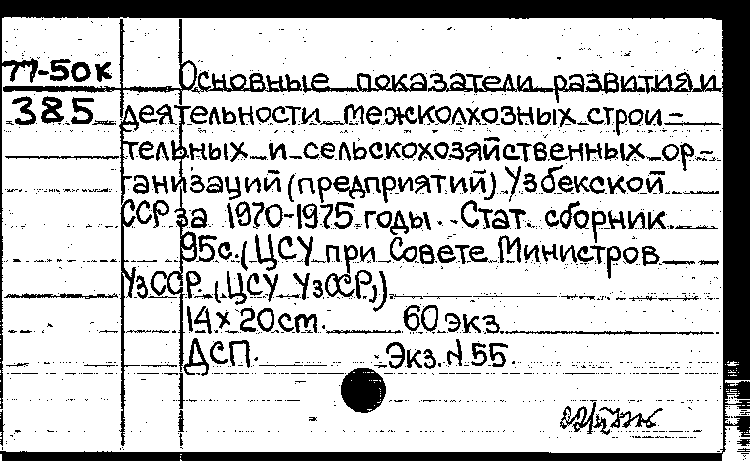 77-50к
385
Основные показатели развития и
деятельности межколхозных строи-
тельных и сельскохозяйственных ор-
ганизаций (предприятий) Узбекской
ССР за 1970-1975 годы. Стат. сборник
95с. (ЦСУ при Совете Министров
УзССР. (ЦСУ УзССР,)).
14х20см. 60 экз
ДСП. Экз. N 55.